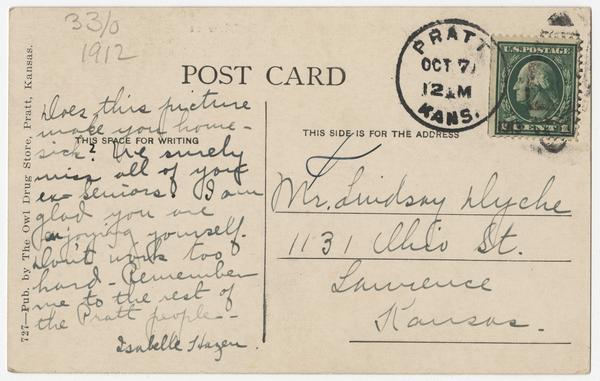 33/0
1912
POST CARD
PRATT
OCT 7
12 M
KANS.
U.S. POSTAGE
CENT 1
THIS SPACE FOR WRITING
THIS SIDE IS FOR THE ADDRESS
Does this picture
make you home-
sick? We surely
miss all of you
ex-seniors. I am
glad you are
enjoying yourself.
Don't work too
hard - Remember
me to the rest of
the Pratt people -
Isabelle Hazen.
Mr. Lindsay Dyche
1131 Ohio St.
Lawrence
Kansas.
727—Pub. by The Owl Drug Store, Pratt, Kansas.